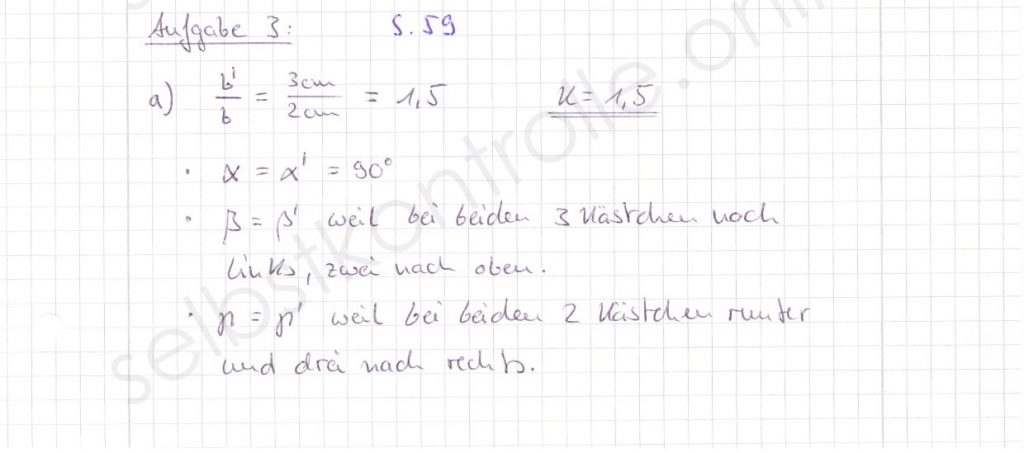 Aufgabe 3: S. 59
a) b'/b = 3cm/2cm = 1,5 K = 1,5
· α = α' = 90°
· β = β' weil bei beiden 3 Kästchen nach
links, zwei nach oben.
· γ = γ' weil bei beiden 2 Kästchen runter
und drei nach rechts.
selbstkontrolle.online